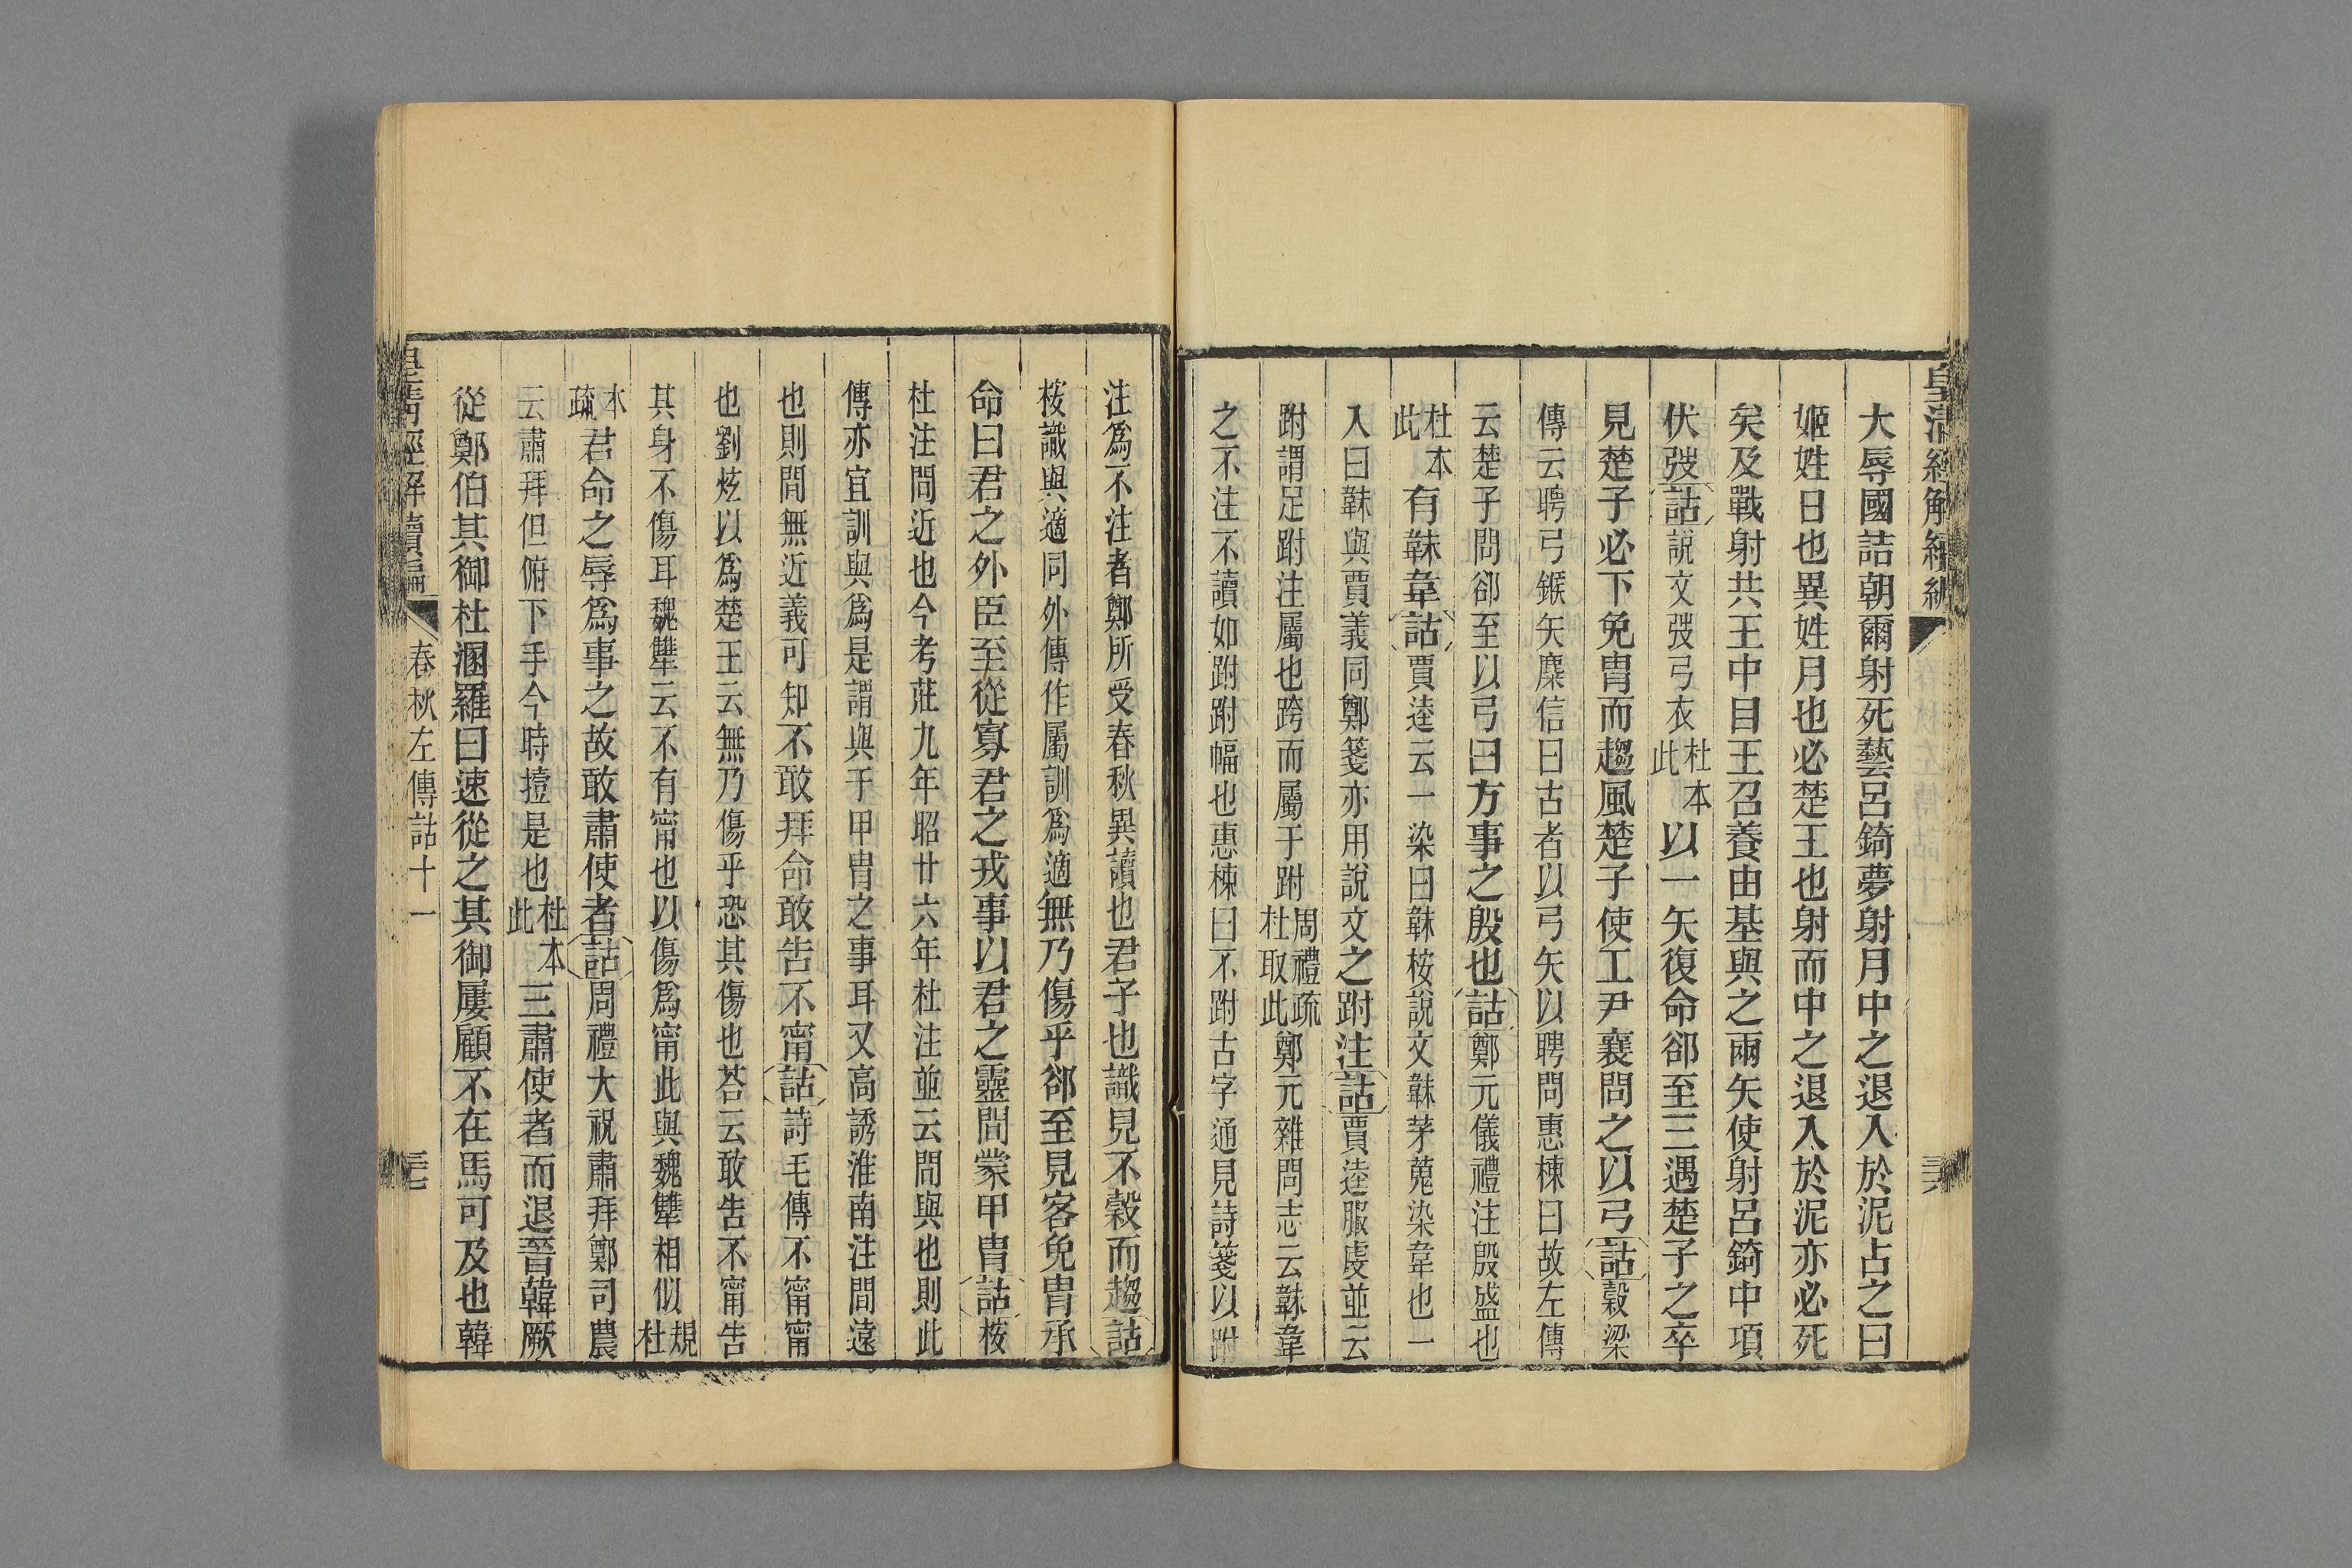 皇清經解續編
大辱國詰朝爾射死藝呂錡夢射月中之退入於泥占之曰
姬姓日也異姓月也必楚王也射而中之退入於泥亦必死
矣及戰射共王中目王召養由基與之兩矢使射呂錡中項
伏弢詁說文弢弓衣杜本此以一矢復命郤至三遇楚子之卒
見楚子必下免冑而趨風楚子使工尹襄問之以弓詁穀梁
傳云聘弓鍭矢麋信曰古者以弓矢以聘問惠棟曰故左傳
云楚子問郤至以弓曰方事之殷也詁鄭元儀禮注殷盛也
杜本此有韎韋詁賈逵云一染曰韎桉說文韎茅蒐染韋也一
入曰韎與賈義同鄭箋亦用說文之跗注詁賈逵服虔並云
跗謂足跗注屬也跨而屬于跗周禮疏杜取此鄭元雜問志云韎韋
之不注不讀如跗跗幅也惠棟曰不跗古字通見詩箋以跗
注爲不注者鄭所受春秋異讀也君子也識見不穀而趨詁
桉識與適同外傳作屬訓爲適無乃傷乎郤至見客免冑承
命曰君之外臣至從寡君之戎事以君之靈間蒙甲冑詁桉
杜注間近也今考莊九年昭廿六年杜注並云間與也則此
傳亦宜訓與爲是謂與于甲冑之事耳又高誘淮南注間遠
也則間無近義可知不敢拜命敢告不甯詁詩毛傳不甯甯
也劉炫以爲楚王云無乃傷乎恐其傷也荅云敢告不甯告
其身不傷耳魏犨云不有甯也以傷爲甯此與魏犨相似規杜
本疏君命之辱爲事之故敢肅使者詁周禮大祝肅拜鄭司農
云肅拜但俯下手今時撎是也杜本此三肅使者而退晉韓厥
從鄭伯其御杜溷羅曰速從之其御屢顧不在馬可及也韓
皇清經解續編
春秋左傳詁十一